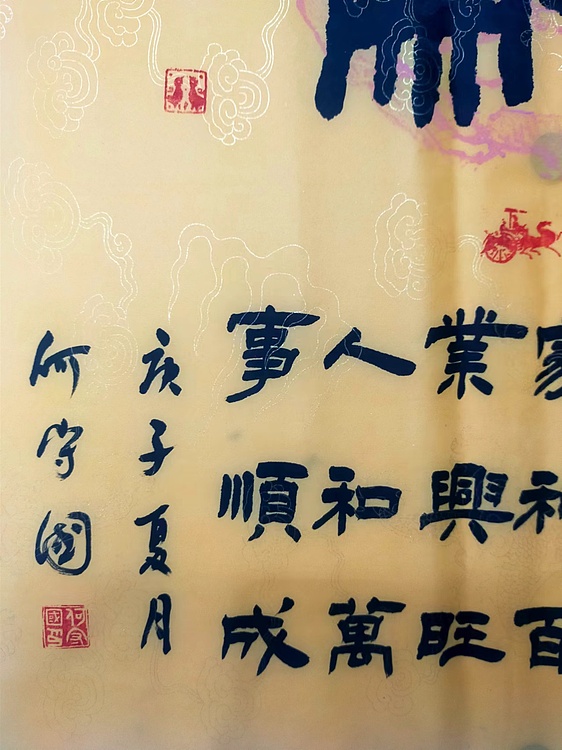 家和百
業興旺
人和萬
事順成
庚子夏月
何守國
何守國印